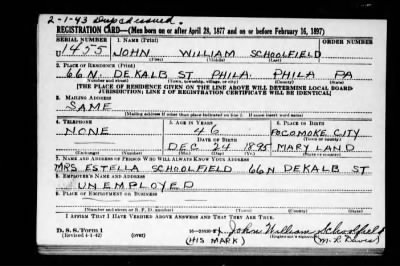 2-1-43 Dup cd issued.
REGISTRATION CARD—(Men born on or after April 28, 1877 and on or before February 16, 1897)
SERIAL NUMBER 1. NAME (Print) ORDER NUMBER
U 1455 JOHN WILLIAM SCHOOLFIELD
(First) (Middle) (Last)
2. PLACE OF RESIDENCE (Print)
66 N. DEKALB ST PHILA. PHILA PA
(Number and street) (Town, township, village, or city) (County) (State)
[THE PLACE OF RESIDENCE GIVEN ON THE LINE ABOVE WILL DETERMINE LOCAL BOARD
JURISDICTION; LINE 2 OF REGISTRATION CERTIFICATE WILL BE IDENTICAL]
3. MAILING ADDRESS
SAME
[Mailing address if other than place indicated on line 2. If same insert word same]
4. TELEPHONE 5. AGE IN YEARS 6. PLACE OF BIRTH
NONE 46 POCOMOKE CITY
DATE OF BIRTH (Town or county)
DEC 24 1895 MARYLAND
(Exchange) (Number) (Mo.) (Day) (Yr.) (State or country)
7. NAME AND ADDRESS OF PERSON WHO WILL ALWAYS KNOW YOUR ADDRESS
MRS ESTELLA SCHOOLFIELD 66 N DEKALB ST
8. EMPLOYER'S NAME AND ADDRESS
UNEMPLOYED
9. PLACE OF EMPLOYMENT OR BUSINESS
(Number and street or R. F. D. number) (Town) (County) (State)
I AFFIRM THAT I HAVE VERIFIED ABOVE ANSWERS AND THAT THEY ARE TRUE.
D. S. S. Form 1
(Revised 4-1-42) (over) X John William Schoolfield
(HIS MARK) (M. L. Davis)